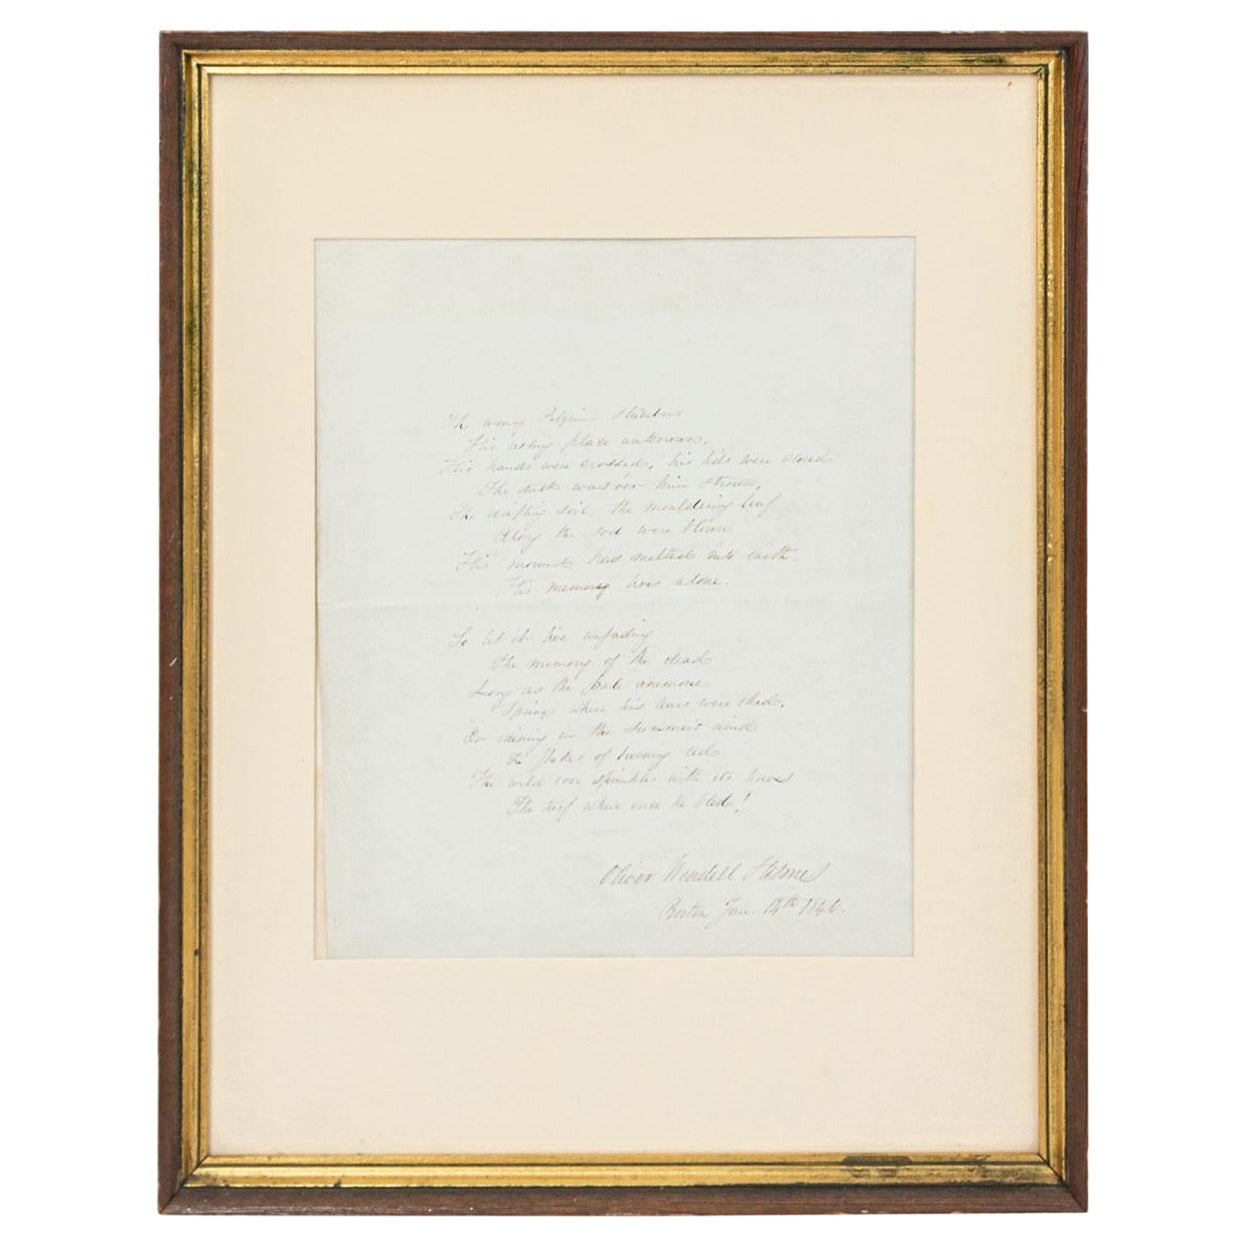 The weary Pilgrim slumbers
His resting place unknown,
His hands were crossed, his lids were closed
The dust was o'er him strown,
The drifting soil, the mouldering leaf
Along the sod were blown
His mound has melted into earth
His memory lives alone.
So let it live unfading
The memory of the dead
Long as the pale anemone
Springs where his tears were shed,
Or raining in the summer's wind
In flakes of burning red
The wild rose sprinkles with its leaves
The turf where once he bled!
Oliver Wendell Holmes
Boston Jan. 14th 1846.